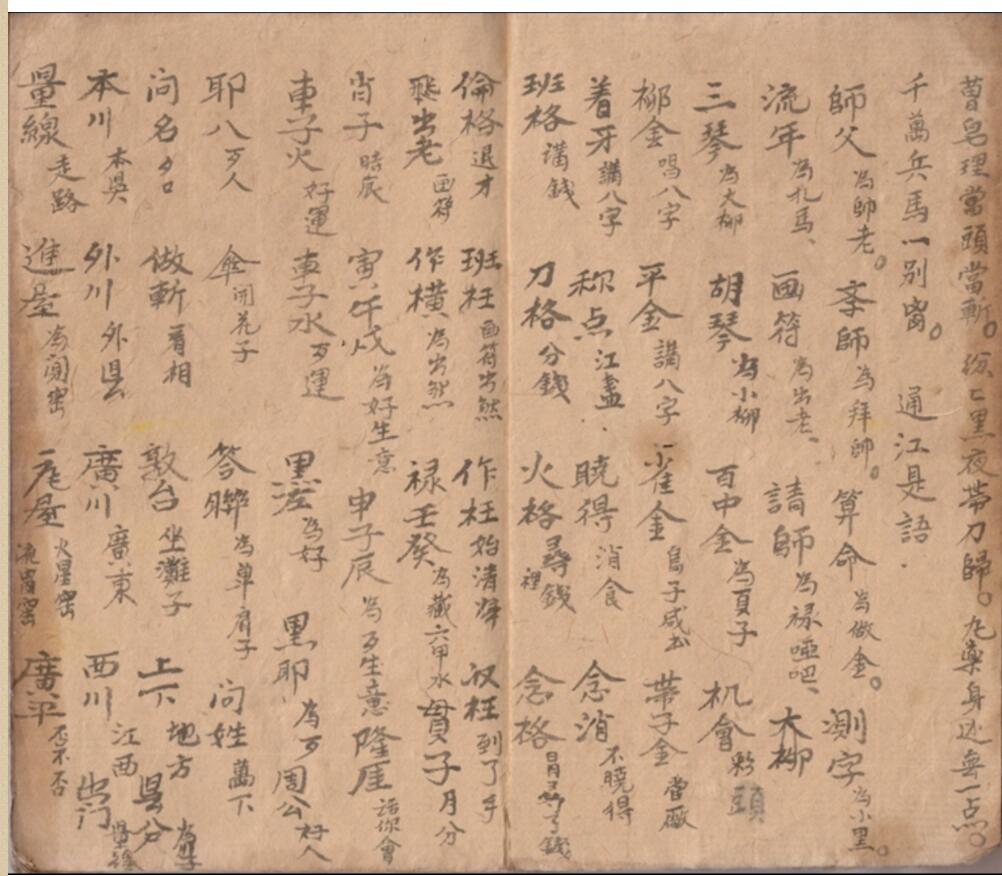 曹皂理當頭當斬。纷匕黑夜带刀歸。九藥身边無一点。
千萬兵馬一别窑。 通江是語
師父為帥老。 李師為拜帥。 算命為做金。 測字為小黑。
流年為扎馬、 画符為出老、 請師為禄哑吧、 大柳
三琴為大柳 胡琴為小柳 百中金為夏子 机會彩頭
柳金唱八字 平金講八字 小雀金鳥子咸出 带子金當廠
着牙講八字 称点江盡 曉得消食 念消不曉得
班格講錢 刀格分錢 火格尋裡錢 念格冒尋了錢
倫格退才 班枉画符出煞 作枉始清滓 収枉到了手
飛出老画符 作横為出煞 禄壬癸為藏六甲水 貫子月分
肖子時辰 寅午戌為好生意 申子辰為歹生意 隆厓話你會
車子火好運 車子水歹運 黑湴為好 黑耶為歹 周公好人
耶八歹人 傘開花子 答聯為单肩子 问姓萬下
问名夕口 做斬看相 敦台坐灘子 上下地方 县分
本川本吳 外川外县 廣川廣東 西川江西 出门量線
量線走路 進屋為闯窑 尾屋火星窑 流冒窑 廣平否不否